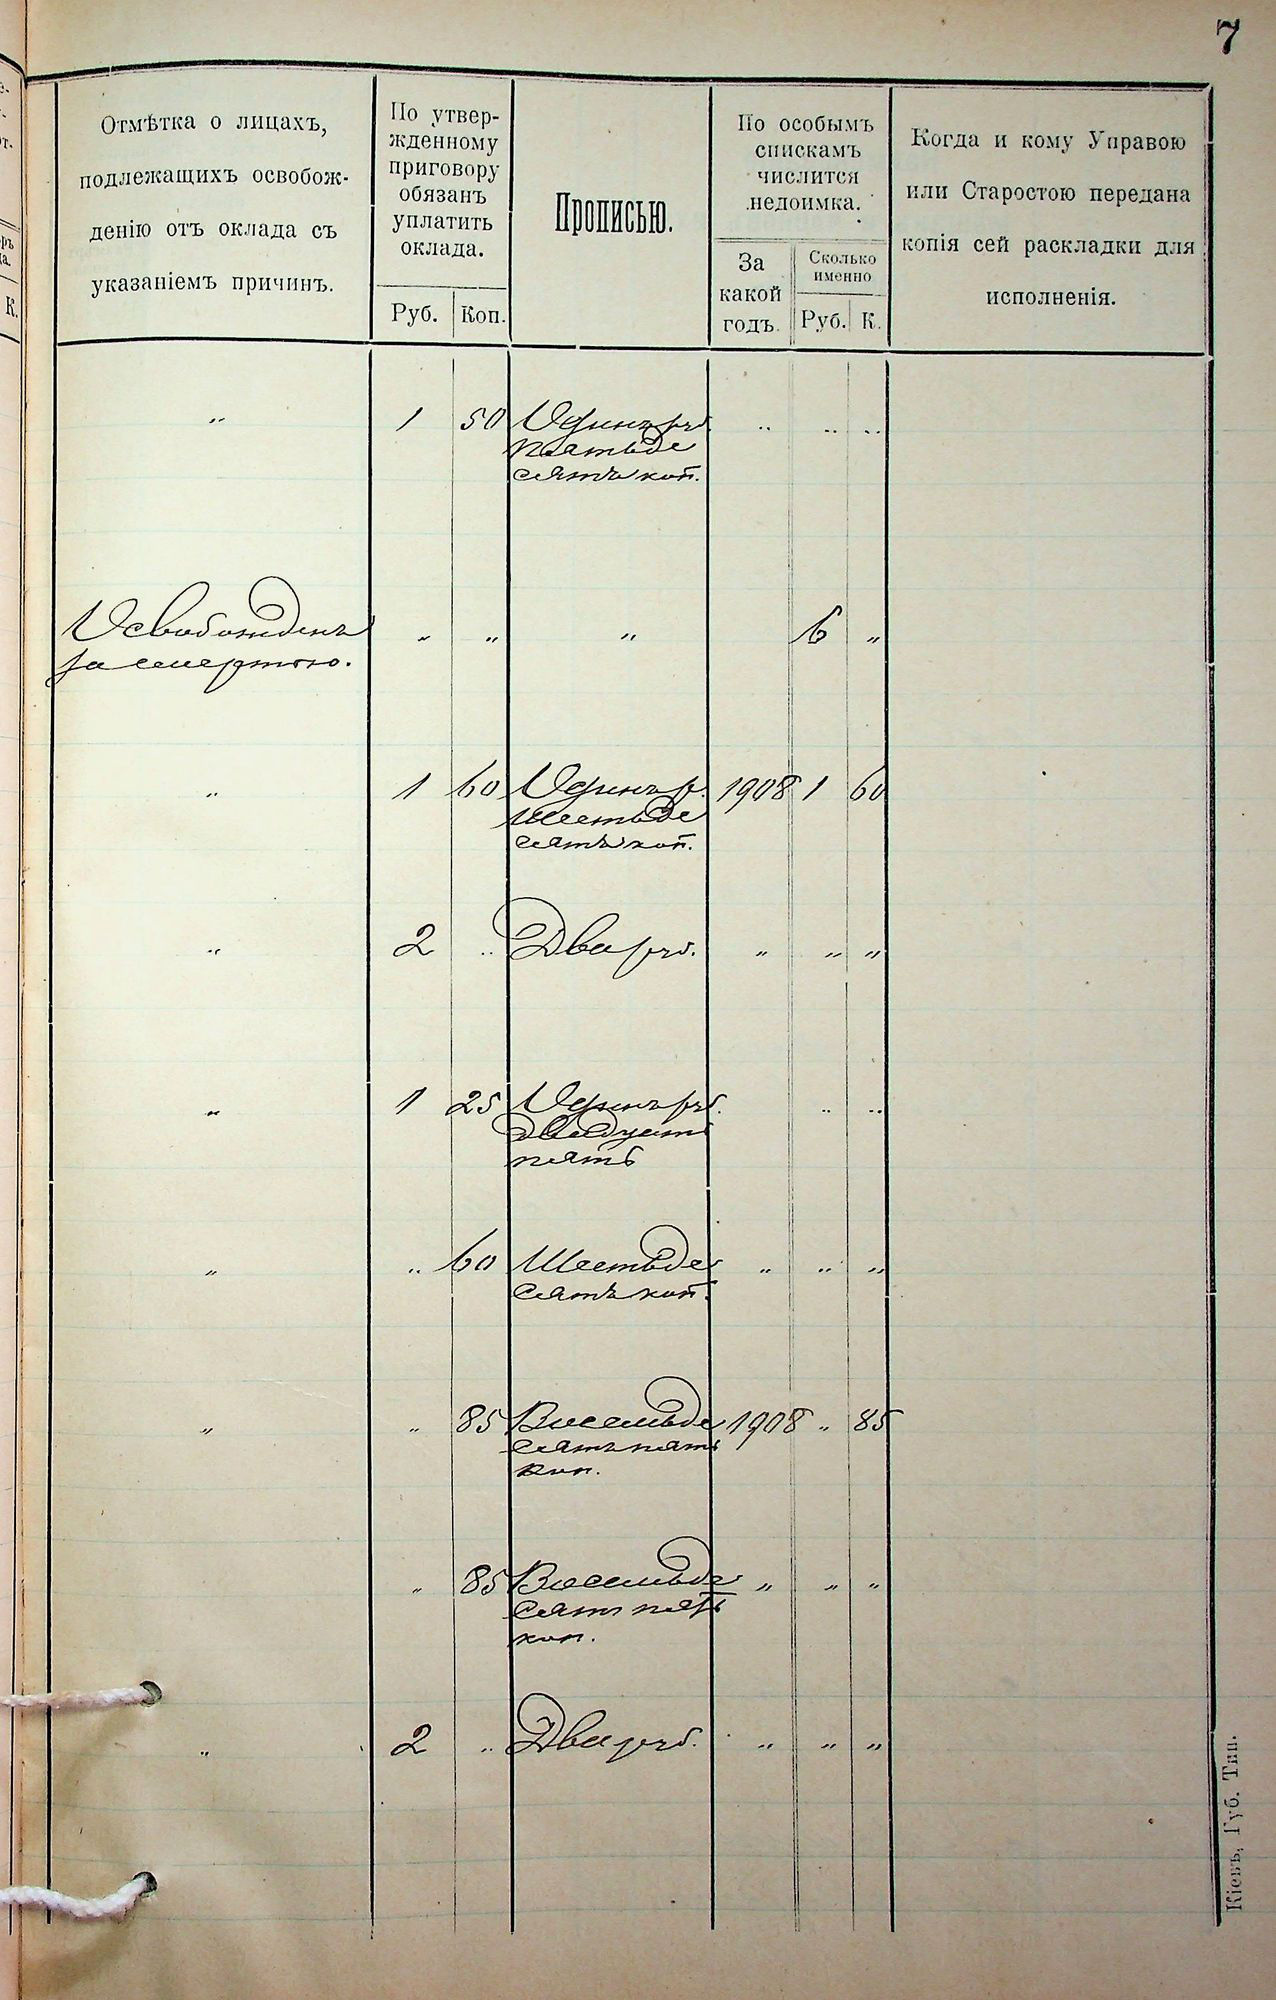 7
Отмѣтка о лицахъ,
подлежащихъ освобож-
денію отъ оклада съ
указаніемъ причинъ.
По утвер-
жденному
приговору
обязанъ
уплатить
оклада.
Руб. Коп.
Прописью.
По особымъ
спискамъ
числится
недоимка.
За
какой
годъ.
Сколько
именно
Руб. К.
Когда и кому Управою
или Старостою передана
копія сей раскладки для
исполненія.
„ 1 50 Одинъ руб. „ „ „
пятьде
сятъ коп.
Освобожденъ „ „ „ 6 „
за смертью.
„ 1 60 Одинъ р. 1908 1 60
шестьде
сятъ коп.
„ 2 „ Два руб. „ „ „
„ 1 25 Одинъ руб. „ „
двадцать
пять
„ „ 60 Шестьде „ „ „
сятъ коп.
„ „ 85 Восемьде 1908 „ 85
сятъ пять
коп.
„ 85 Восемьде „ „ „
сятъ пять
коп.
„ 2 „ Два руб. „ „ „
Кіевъ, Губ. Тип.
К.